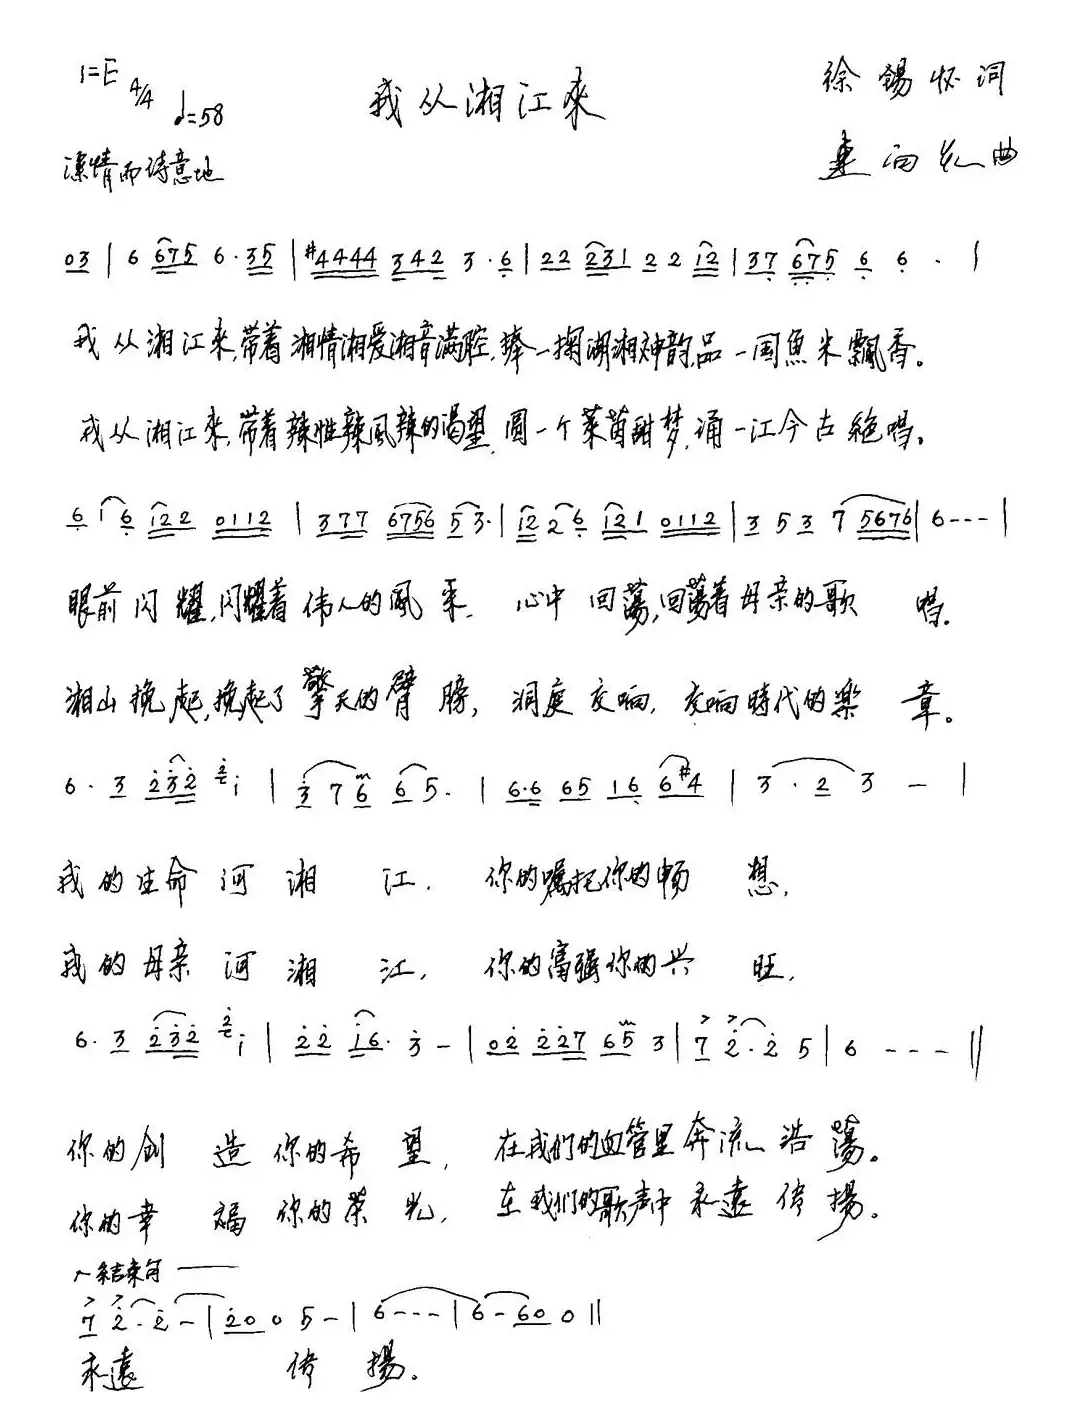 1=E 4/4 ♩=58
我从湘江來
徐錫怀词
曲
深情而诗意地
03 | 6 675 6·35 | #4444 342 3·6 | 22 231 22 12 | 37 675 6 6 · |
我从湘江來,带着湘情湘爱湘音满腔,捧一掬湖湘神韵,品一国魚米飄香。
我从湘江來,带着辣性辣风辣的渴望,圆一个莱茵甜梦,诵一江今古絶唱。
6 1 6 122 0112 | 377 6756 5 3· | 12 2 6 121 0112 | 3 5 3 7 5676 | 6--- |
眼前闪耀,闪耀着伟人的風采,心中回荡,回荡着母亲的歌唱。
湘山挽起,挽起了擎天的臂膀,洞庭交响,交响時代的樂章。
6·3 232 2 1 | 3 7 6 6 5· | 6·6 65 16 6#4 | 3·2 3 — |
我的生命河湘江,你的嘱托你的畅想,
我的母亲河湘江,你的富强你的兴旺,
6·3 232 2 1 | 22 16· 3 — | 02 227 65 3 | 7 2·2 5 | 6 --- ||
你的创造你的希望,在我们的血管里奔流浩荡。
你的幸福你的荣光,在我们的歌声中永遠传揚。
结束句
7 2·2 — | 200 5 — | 6--- | 6-60 0 ||
永遠传揚。